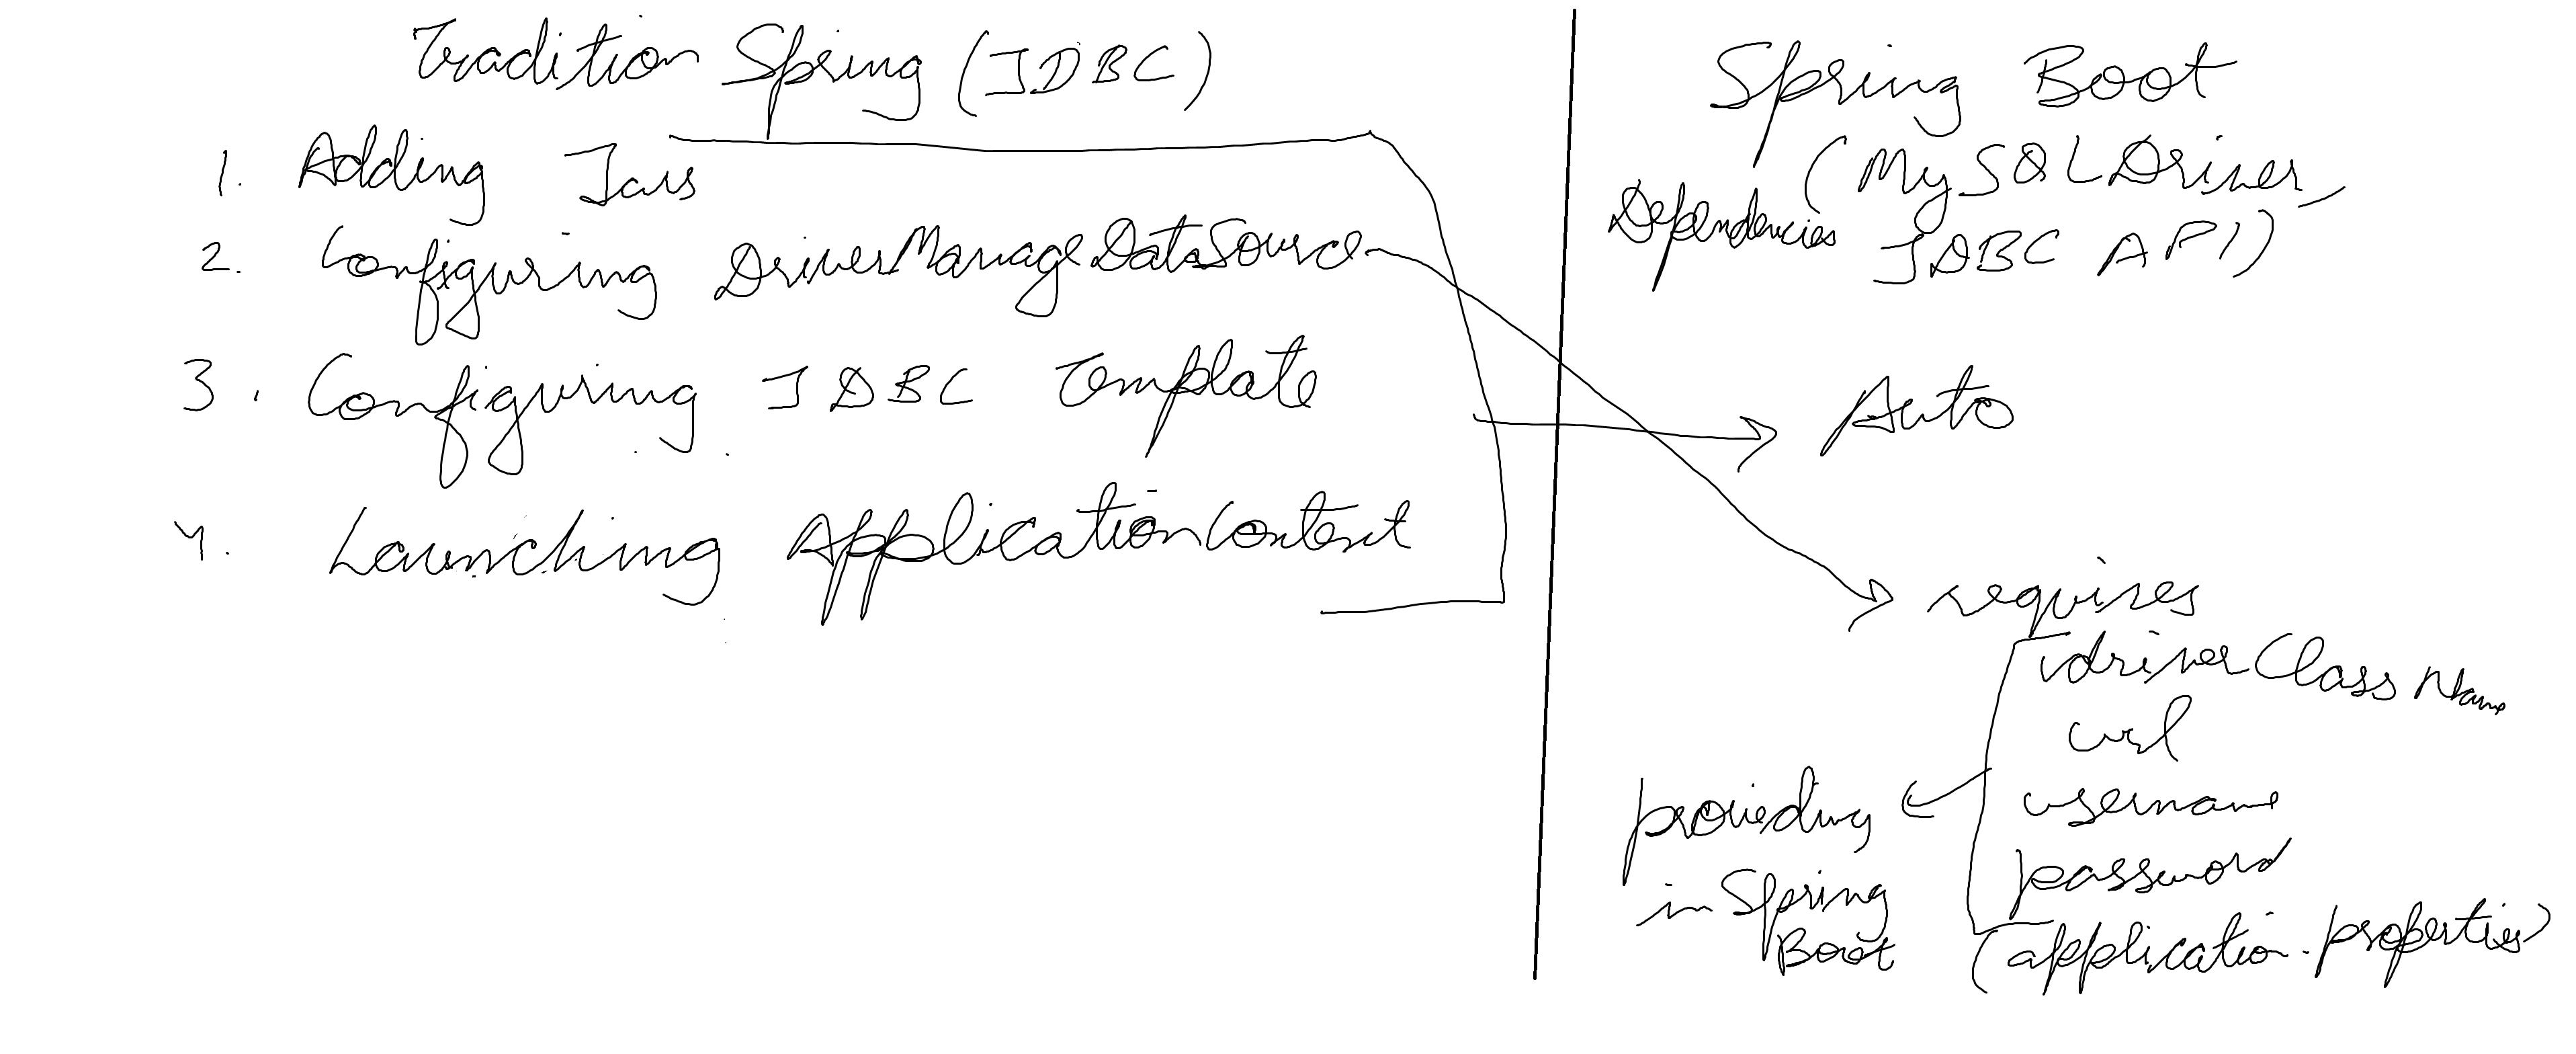 Tradition Spring (JDBC)
1. Adding Jars
2. Configuring DriverManageDataSource
3. Configuring JDBC Template
4. Launching ApplicationContext
Spring Boot
Dependencies (MySQL Driver,
JDBC API)
Auto
requires
driverClassName
url
username
password
(application.properties)
provieding
in Spring
Boot